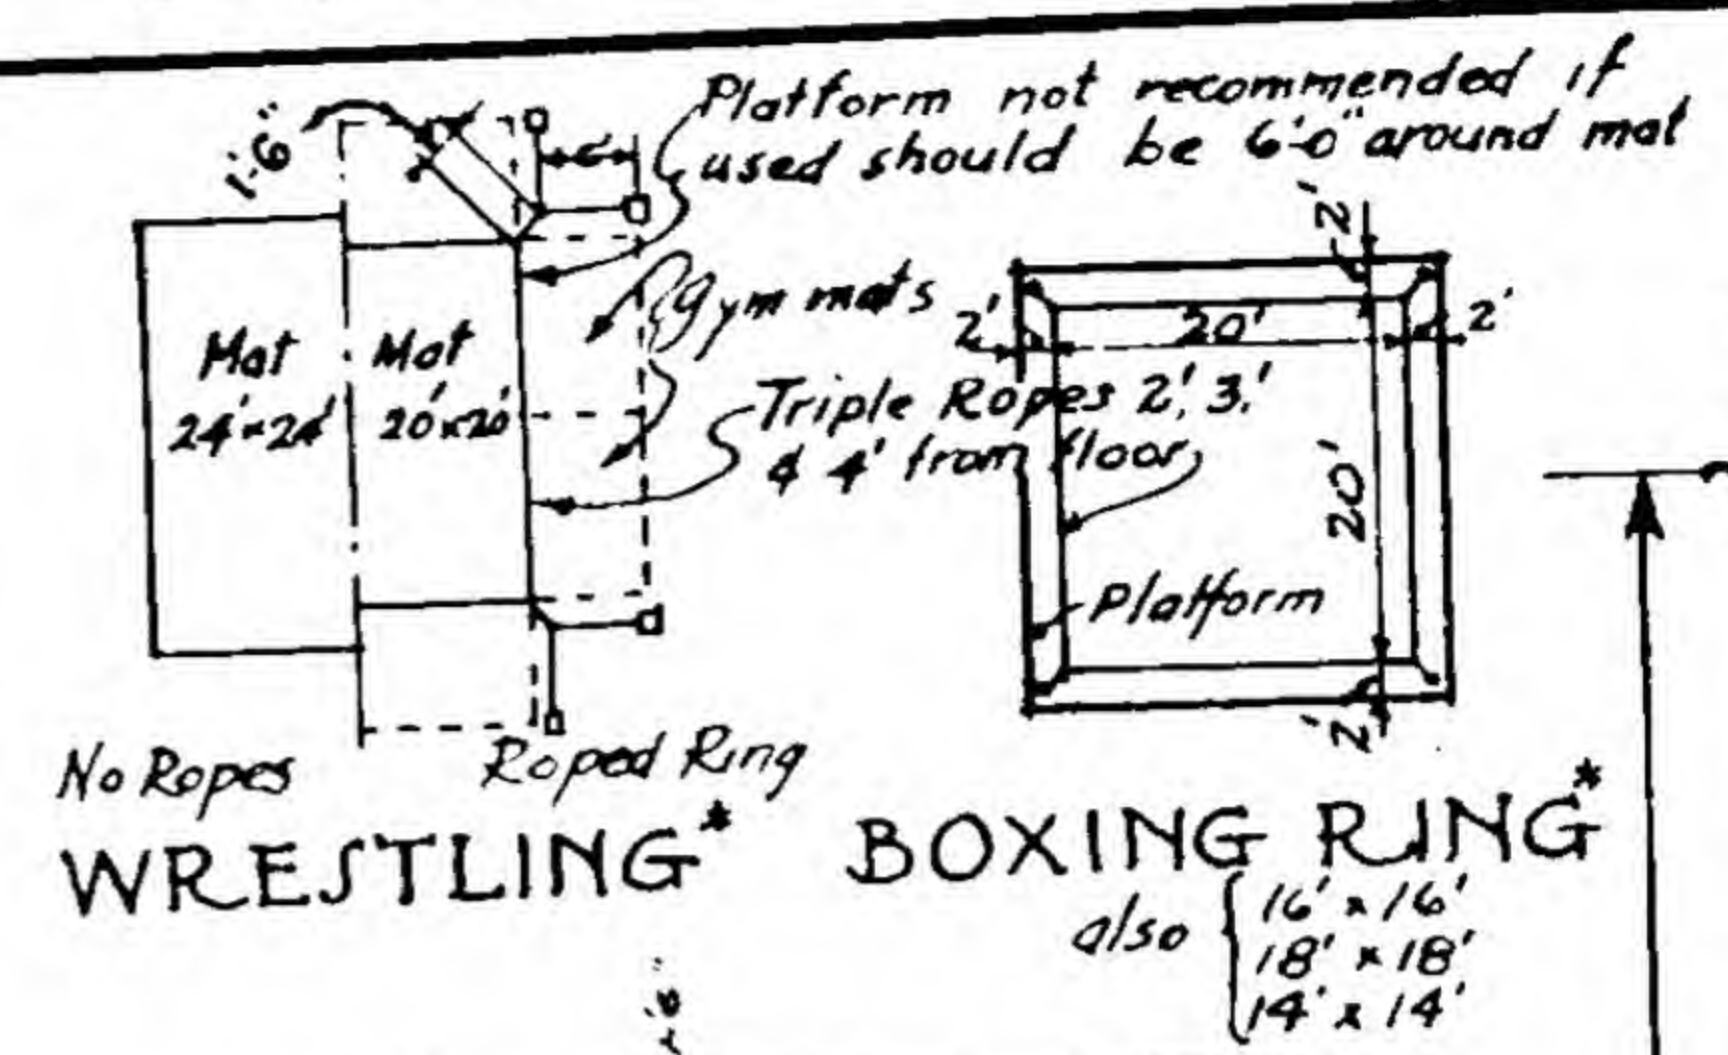 Platform not recommended if
used should be 6'-0" around mat
1'-6"
6'
Gym mats
Mat
24'x24'
Mat
20'x20'
Triple Ropes 2', 3,'
& 4' from floor
2'
2'
20'
2'
20'
Platform
2'
No Ropes
Roped Ring
WRESTLING*
BOXING RING*
also
16' x 16'
18' x 18'
14' x 14'